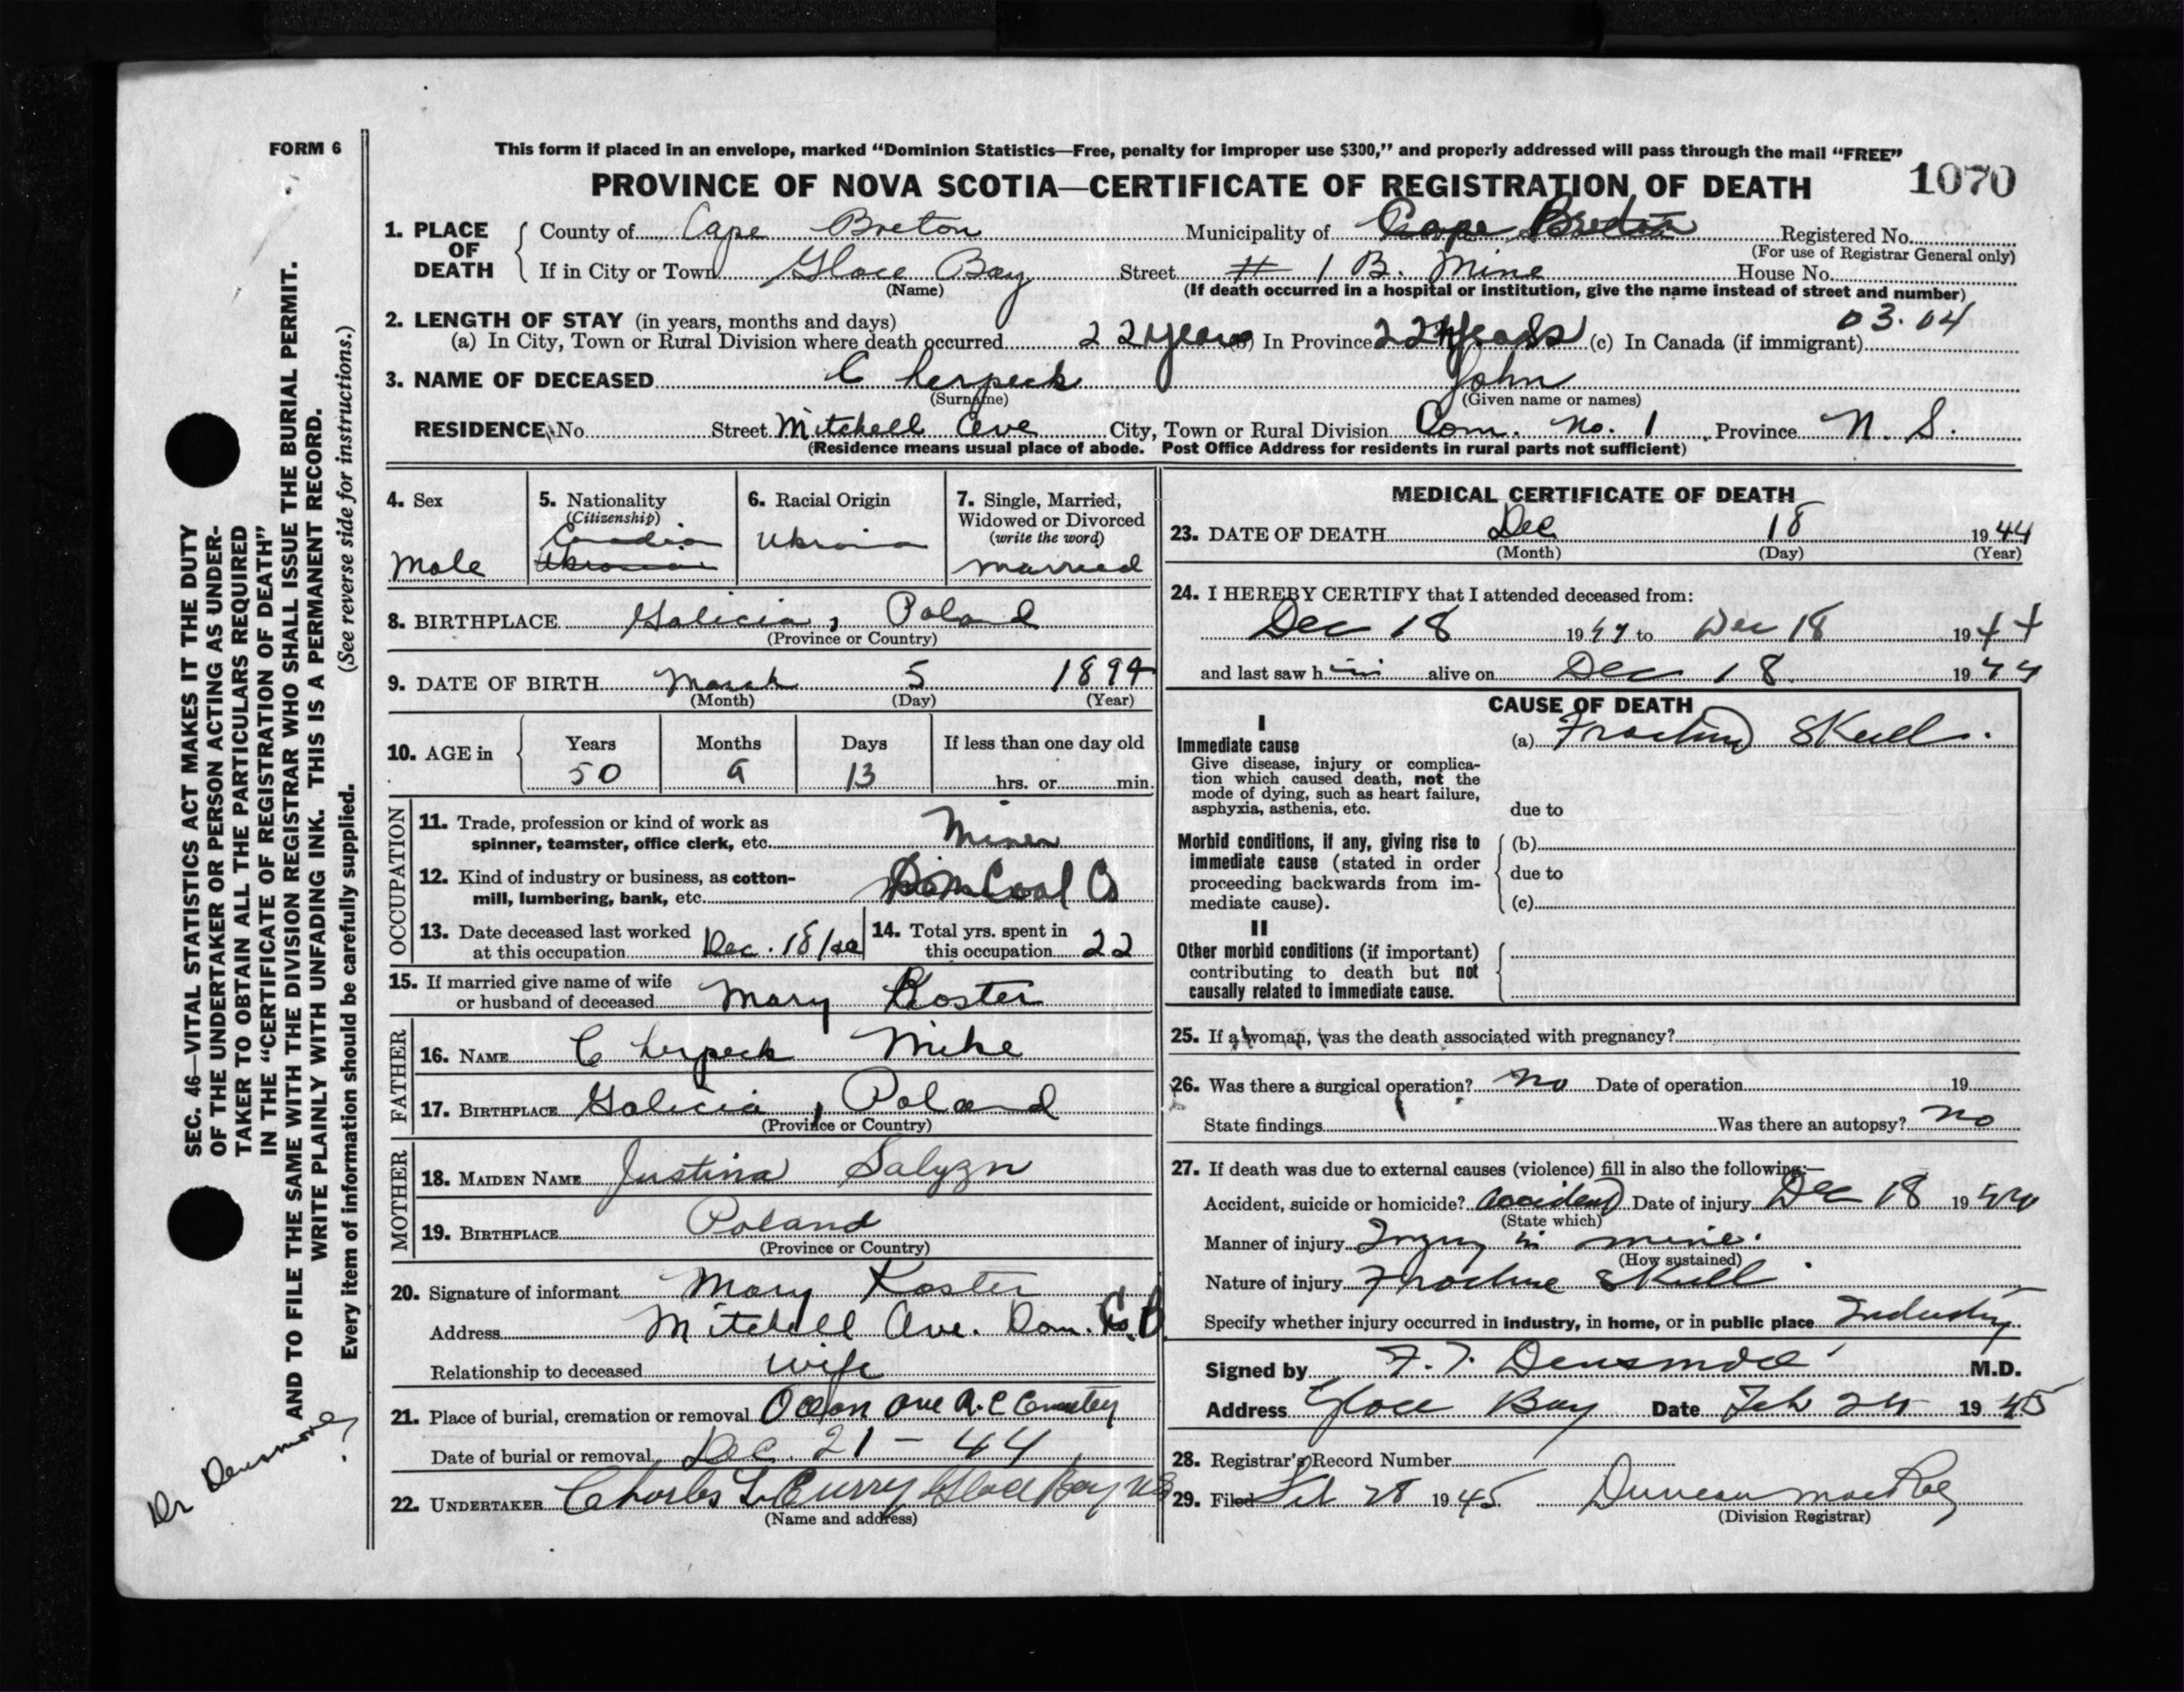 FORM 6
This form if placed in an envelope, marked “Dominion Statistics—Free, penalty for improper use $300,” and properly addressed will pass through the mail “FREE”
PROVINCE OF NOVA SCOTIA—CERTIFICATE OF REGISTRATION OF DEATH 1070
1. PLACE OF DEATH
County of Cape Breton Municipality of Cape Breton Registered No.
(For use of Registrar General only)
If in City or Town Glace Bay Street # 1 B. Mine House No.
(Name) (If death occurred in a hospital or institution, give the name instead of street and number)
03.04
2. LENGTH OF STAY (in years, months and days)
(a) In City, Town or Rural Division where death occurred 22 years (b) In Province 22 years (c) In Canada (if immigrant)
3. NAME OF DECEASED Cherpeck John
(Surname) (Given name or names)
RESIDENCE, No. Street Mitchell Ave City, Town or Rural Division Dom. No. 1 Province N. S.
(Residence means usual place of abode. Post Office Address for residents in rural parts not sufficient)
4. Sex Male
5. Nationality (Citizenship) Canadian Ukrainian
6. Racial Origin Ukrain
7. Single, Married, Widowed or Divorced (write the word) married
8. BIRTHPLACE Galicia, Poland
(Province or Country)
9. DATE OF BIRTH March 5 1894
(Month) (Day) (Year)
10. AGE in Years Months Days If less than one day old
50 9 13 hrs. or min.
OCCUPATION
11. Trade, profession or kind of work as
spinner, teamster, office clerk, etc. Miner
12. Kind of industry or business, as cotton-
mill, lumbering, bank, etc. Dom Coal Co
13. Date deceased last worked
at this occupation Dec. 18/44
14. Total yrs. spent in
this occupation 22
15. If married give name of wife
or husband of deceased Mary Koster
FATHER
16. NAME Cherpeck Mike
17. BIRTHPLACE Galicia, Poland
(Province or Country)
MOTHER
18. MAIDEN NAME Justina Salyzn
19. BIRTHPLACE Poland
(Province or Country)
20. Signature of informant Mary Koster
Address Mitchell Ave. Dom. C.B.
Relationship to deceased wife
21. Place of burial, cremation or removal Ocean Ave R.C Cemetery
Date of burial or removal Dec. 21 - 44
22. UNDERTAKER Charles L Curry Glace Bay NS
(Name and address)
MEDICAL CERTIFICATE OF DEATH
23. DATE OF DEATH Dec 18 1944
(Month) (Day) (Year)
24. I HEREBY CERTIFY that I attended deceased from:
Dec 18 1944 to Dec 18 1944
and last saw him alive on Dec 18 1944
CAUSE OF DEATH
I
Immediate cause (a) Fractured Skull.
Give disease, injury or complica-
tion which caused death, not the
mode of dying, such as heart failure,
asphyxia, asthenia, etc. due to
Morbid conditions, if any, giving rise to (b)
immediate cause (stated in order
proceeding backwards from im- due to
mediate cause). (c)
II
Other morbid conditions (if important)
contributing to death but not
causally related to immediate cause.
25. If a woman, was the death associated with pregnancy?
26. Was there a surgical operation? No Date of operation 19
State findings Was there an autopsy? No
27. If death was due to external causes (violence) fill in also the following:—
Accident, suicide or homicide? Accident Date of injury Dec 18 1944
(State which)
Manner of injury Injury in mine.
(How sustained)
Nature of injury Fracture Skull
Specify whether injury occurred in industry, in home, or in public place Industry
Signed by F. T. Densmore M.D.
Address Glace Bay Date Feb 24 1945
28. Registrar's Record Number
29. Filed Feb 28 1945 Duncan MacRae
(Division Registrar)
SEC. 46—VITAL STATISTICS ACT MAKES IT THE DUTY
OF THE UNDERTAKER OR PERSON ACTING AS UNDER-
TAKER TO OBTAIN ALL THE PARTICULARS REQUIRED
IN THE “CERTIFICATE OF REGISTRATION OF DEATH”
AND TO FILE THE SAME WITH THE DIVISION REGISTRAR WHO SHALL ISSUE THE BURIAL PERMIT.
WRITE PLAINLY WITH UNFADING INK. THIS IS A PERMANENT RECORD.
Every item of information should be carefully supplied. (See reverse side for instructions.)
Dr Densmore?